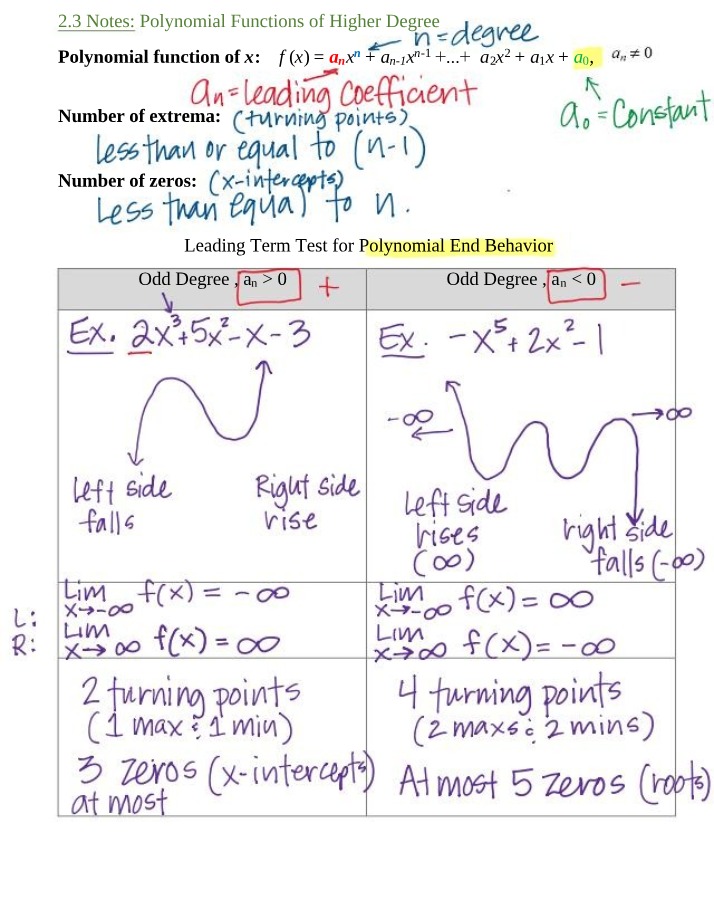 2.3 Notes: Polynomial Functions of Higher Degree
n = degree
Polynomial function of x: f (x) = aₙxⁿ + aₙ₋₁xⁿ⁻¹ +...+ a₂x² + a₁x + a₀, aₙ ≠ 0
aₙ = leading coefficient
a₀ = Constant
Number of extrema: (turning points)
less than or equal to (n-1)
Number of zeros: (x-intercepts)
Less than equal to n.
Leading Term Test for Polynomial End Behavior
Odd Degree , aₙ > 0 +
Odd Degree , aₙ < 0 −
Ex. 2x³+5x²-x-3
Ex. -x⁵+2x²-1
-∞
→∞
Left side
falls
Right side
rise
Left side
rises
(∞)
right side
falls (-∞)
L: Lim x→-∞ f(x) = -∞
R: Lim x→∞ f(x) = ∞
Lim x→-∞ f(x) = ∞
Lim x→∞ f(x) = -∞
2 turning points
(1 max & 1 min)
3 zeros (x-intercepts)
at most
4 turning points
(2 maxs & 2 mins)
At most 5 zeros (roots)